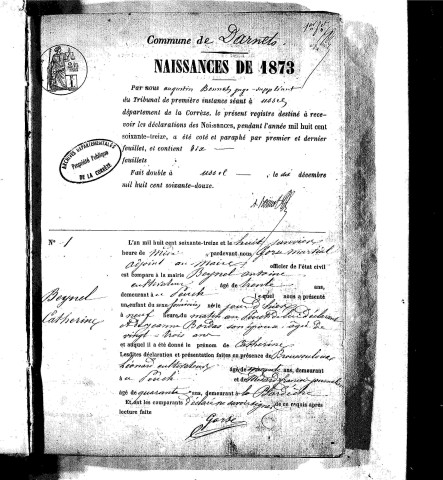 Commune de Darnets
NAISSANCES DE 1873
Par nous augustin Bonnet, juge suppléant
du Tribunal de première instance séant à ussel
département de la Corrèze, le présent registre destiné à rece-
voir les déclarations des Naissances, pendant l'année mil huit cent
soixante-treize, a été coté et paraphé par premier et dernier
feuillet, et contient dix
feuillets.
Fait double à ussel, le dix décembre
mil huit cent soixante-douze.
ARCHIVES DÉPARTEMENTALES
Propriété Publique
DE LA CORRÈZE
N° 1
Beynel
Catherine
L'an mil huit cent soixante-treize et le huit janvier
heure de midi pardevant nous Gorse martial
adjoint au Maire officier de l'état civil
est comparu à la mairie Beynel antoine
cultivateur âgé de trente ans,
demeurant à lequel nous a présenté
un enfant du sexe féminin né le jour d'hier
à neuf heures du matin
Bordas son épouse âgée de
vingt trois ans
et auquel il a été donné le prénom de Catherine
Lesdites déclaration et présentation faites en présence de
Léonard cultivateur âgé de ans, demeurant
à et de
âgé de quarante ans, demeurant à la
Et ont les comparants déclaré ne savoir signer de ce requis après
lecture faite
Gorse